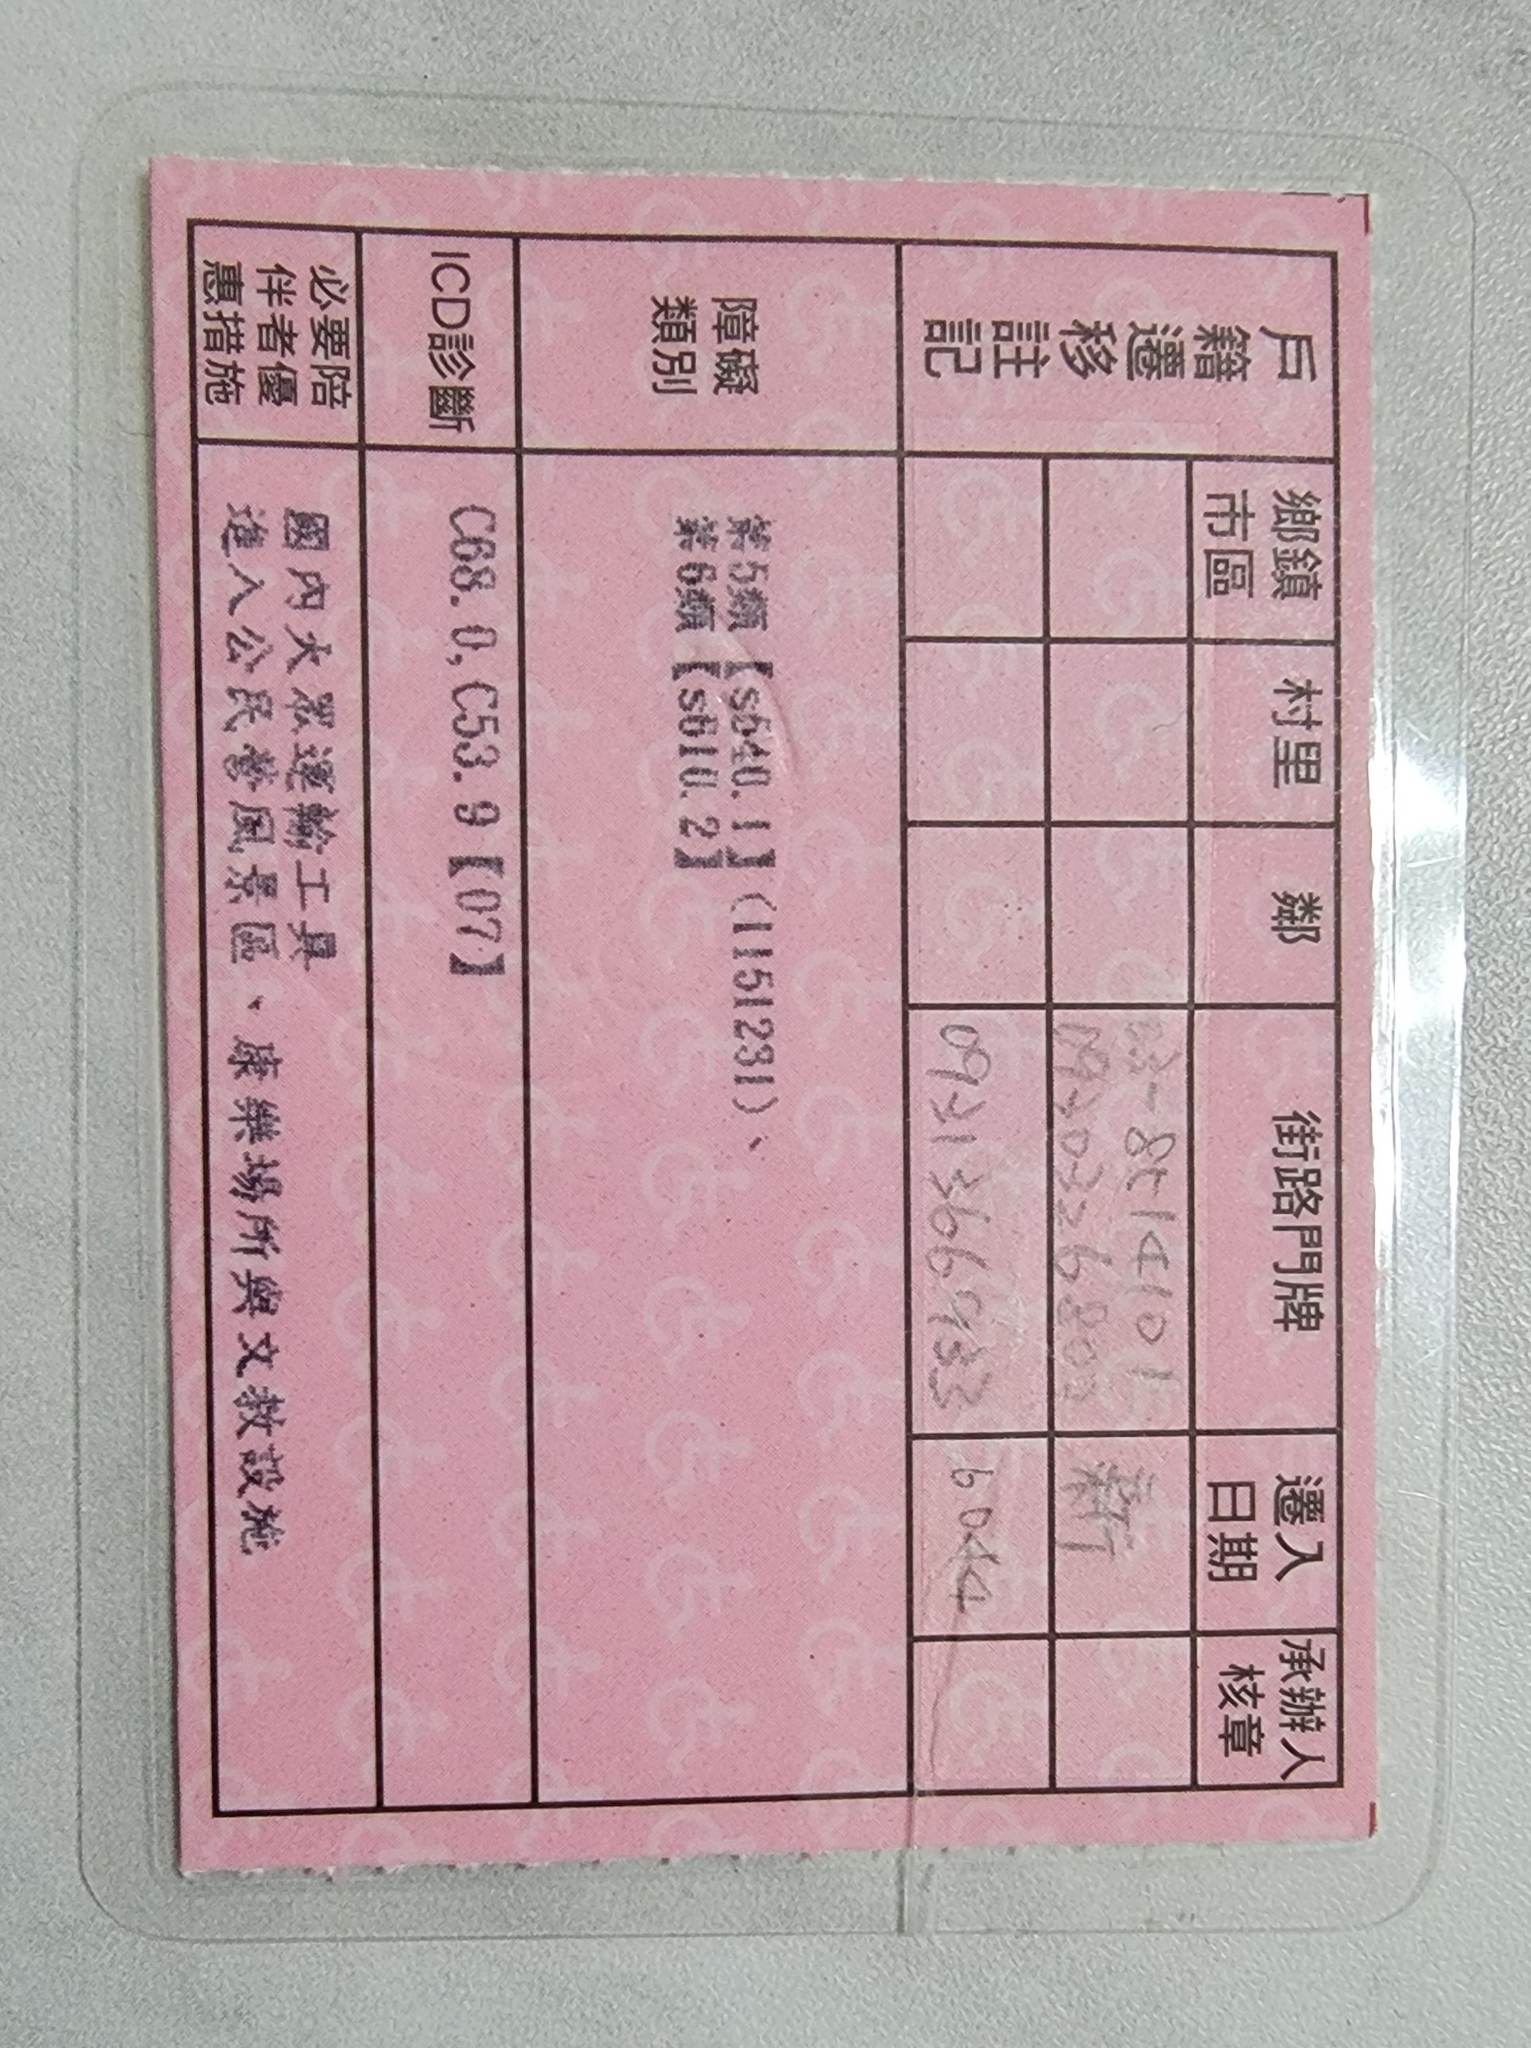 戶籍遷移註記
鄉鎮市區
村里
鄰
街路門牌
遷入日期
承辦人核章
新
6044
障礙類別
第5類【s540.1】(1151231)、
第6類【s610.2】
ICD診斷
C68.0,C53.9【07】
必要陪伴者優惠措施
國內大眾運輸工具
進入公民營風景區、康樂場所與文教設施